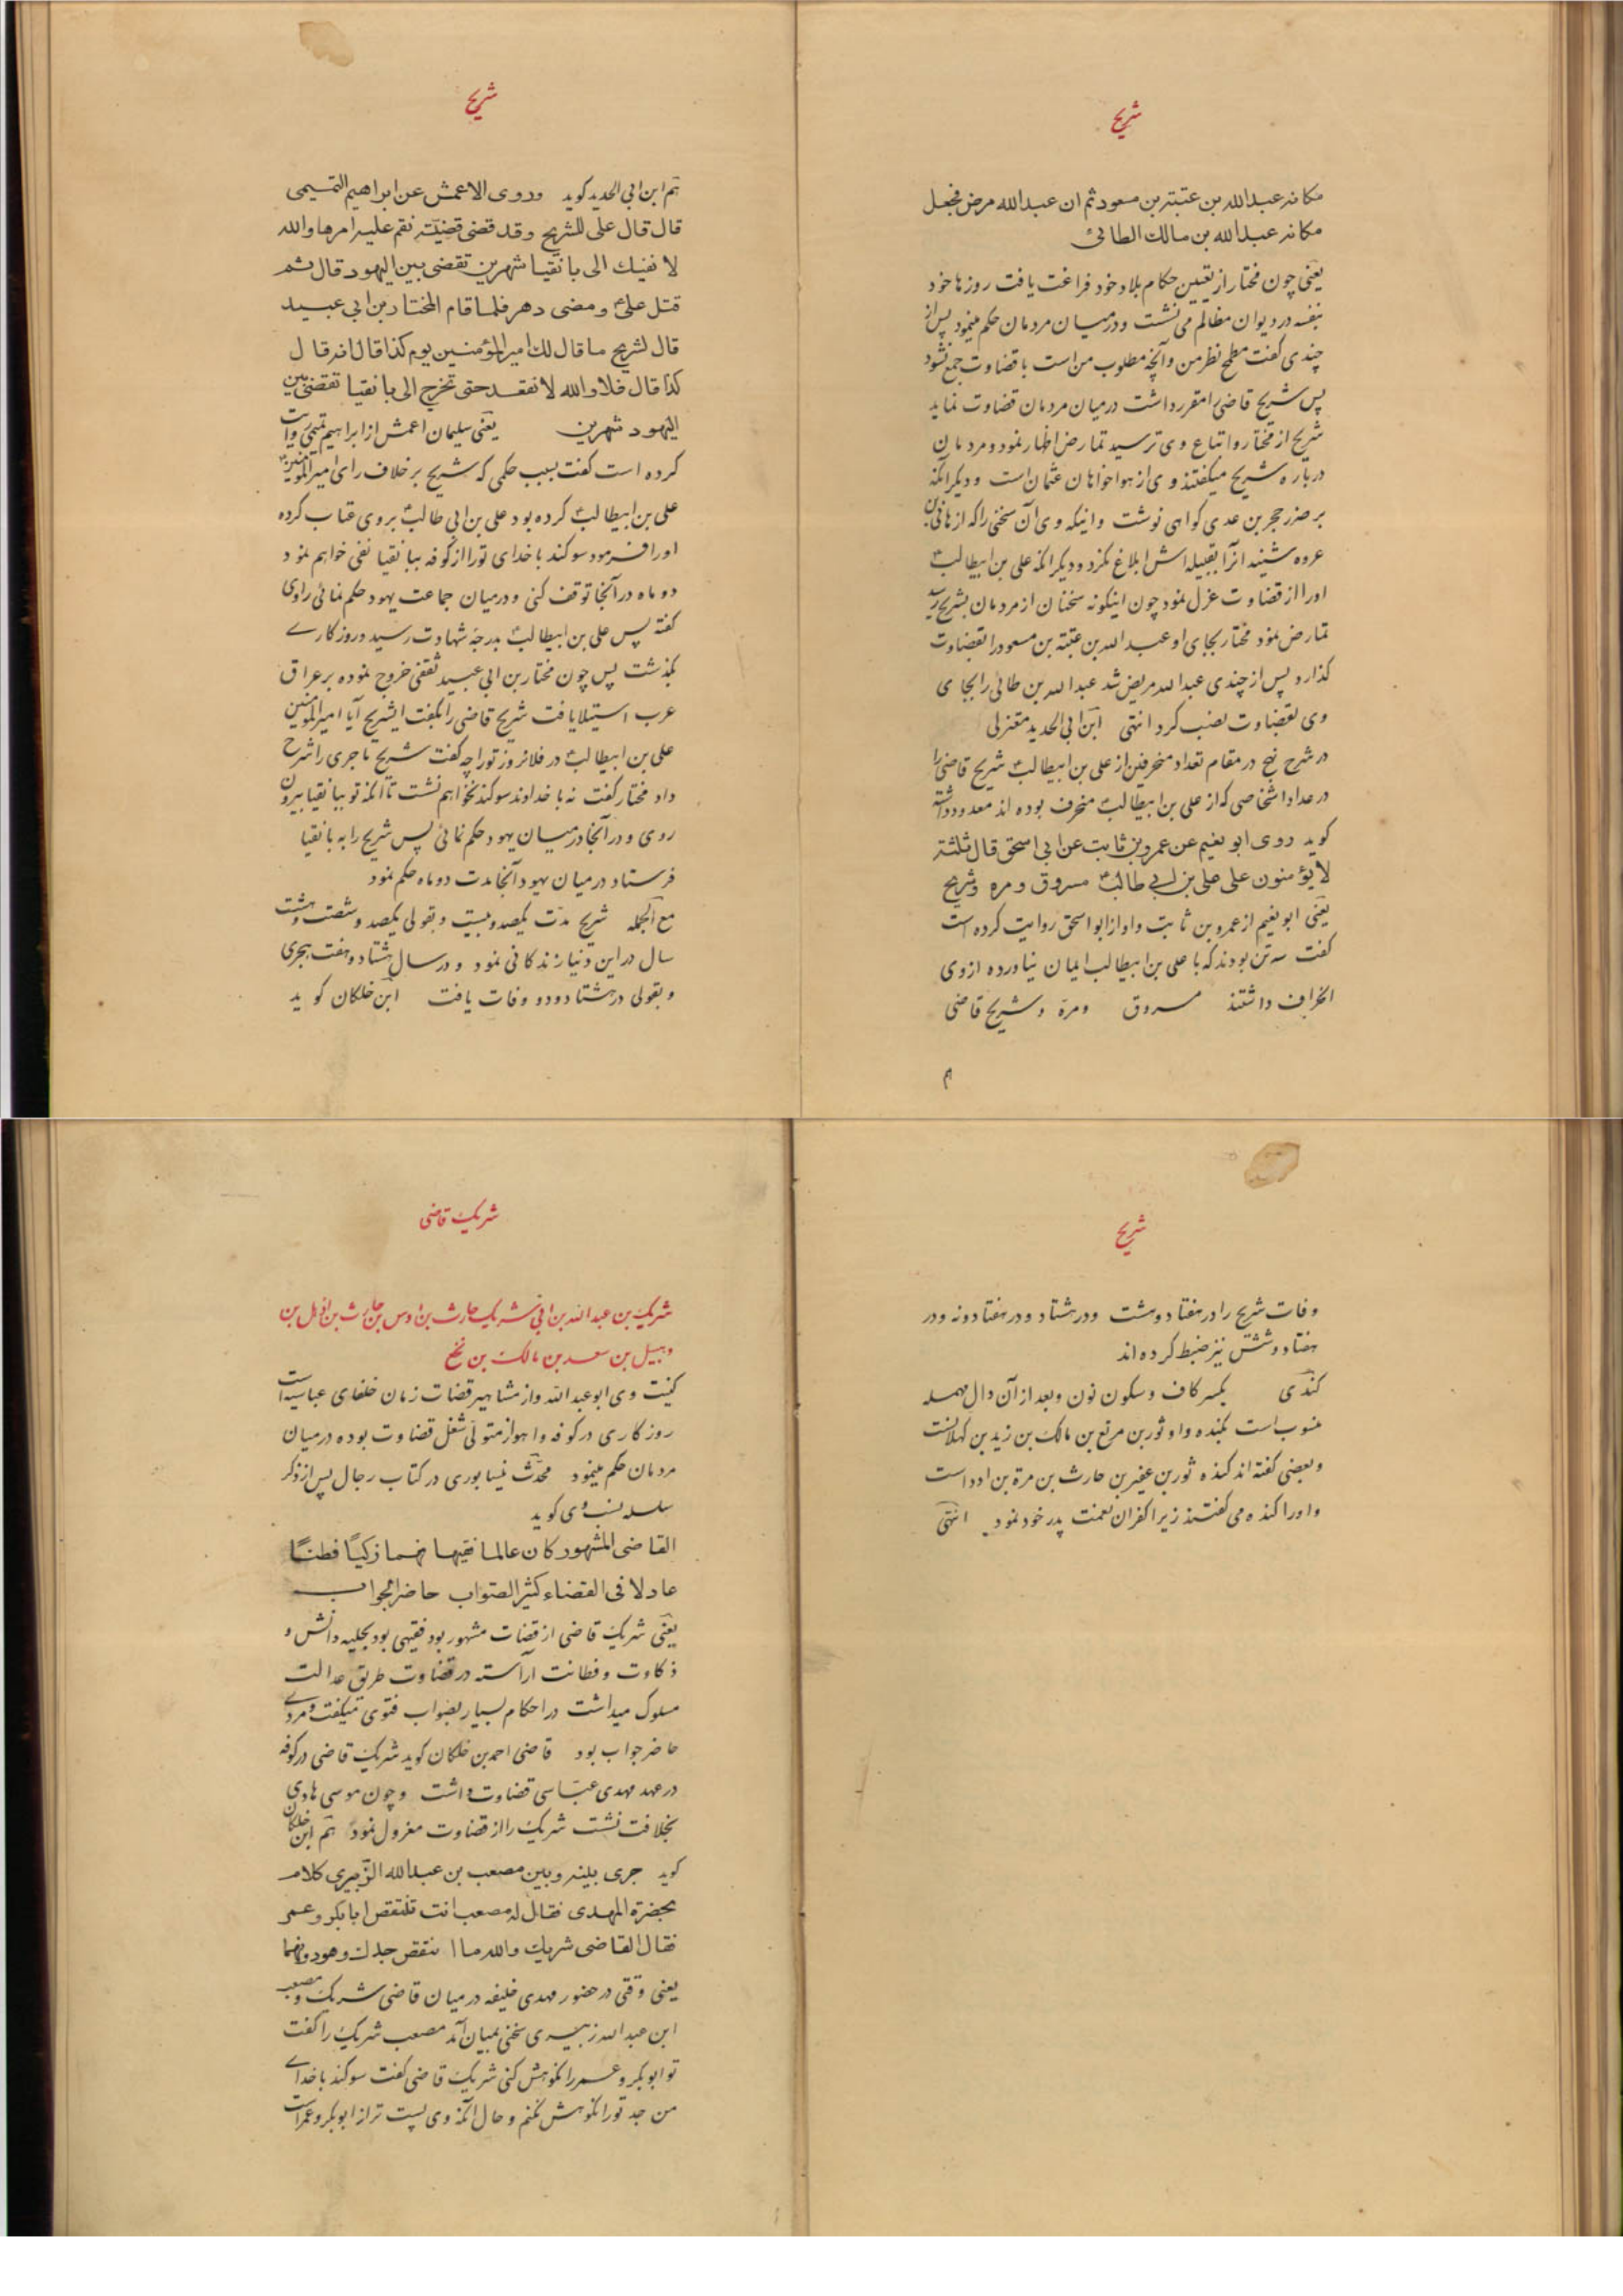 شریح
مکانه عبدالله بن عتبة بن مسعود ثم ان عبدالله مرض فجعل
مکانه عبدالله بن مالك الطائی
یعنی چون مختار از تعیین حکام بلاد خود فراغت یافت روزها خود
بنفسه در دیوان مظالم می نشست و در میان مردمان حکم مینمود پس از
چندی گفت مطمح نظر من و آنچه مطلوب من است با قضاوت جمع نشود
پس شریح قاضی را مقرر داشت درمیان مردمان قضاوت نماید
شریح از مختار و اتباع وی ترسید تمارض اظهار نمود و مردمان
درباره شریح میگفتند وی از هواخواهان عثمان است و دیگر آنکه
بر ضرر حجر بن عدی گواهی نوشت و اینکه وی آن سخنی را که از هانی بن
عروه شنید آنرا بقبیله اش ابلاغ نکرد و دیگر آنکه علی بن ابیطالب ع
او را از قضاوت عزل نمود چون اینگونه سخنان از مردمان بشریح رسید
تمارض نمود مختار بجای او عبدالله بن عتبة بن مسعود را بقضاوت
گذارد و پس از چندی عبدالله مریض شد عبدالله بن طائی را بجای
وی بقضاوت نصب کرد انتهی ابن ابی الحدید معتزلی
در شرح نهج در مقام تعداد منحرفین از علی بن ابیطالب ع شریح قاضی را
در عداد اشخاصی که از علی بن ابیطالب ع منحرف بوده اند معدود داشته
گوید روی ابو نعیم عن عمرو بن ثابت عن ابی اسحق قال ثلثة
لا یؤمنون علی علی بن ابی طالب ع مسروق و مره و شریح
یعنی ابو نعیم از عمرو بن ثابت و او از ابو اسحق روایت کرده است
گفت سه تن بودند که با علی بن ابیطالب ایمان نیاورده از وی
انحراف داشتند مسروق و مرة و شریح قاضی
شریح
هم ابن ابی الحدید گوید وروی الاعمش عن ابراهیم التمیمی
قال قال علی لشریح وقد قضی قضیّة نقم علیه امرها والله
لانفینك الی بانقیا شهرین تقضی بین الیهود قال ثم
قتل علی ع ومضی دهر فلما قام المختار بن ابی عبید
قال لشریح ما قال لك امیر المؤمنین یوم کذا قال انه قال
کذا قال فلا والله لا تقعد حتی تخرج الی بانقیا تقضی بین
الیهود شهرین یعنی سلیمان اعمش از ابراهیم تمیمی روایت
کرده است گفت بسبب حکمی که شریح بر خلاف رای امیرالمؤمنین
علی بن ابیطالب ع کرده بود علی بن ابی طالب ع بر وی عتاب کرده
او را فرمود سوگند با خدای تو را از کوفه ببانقیا نفی خواهم نمود
دو ماه در آنجا توقف کنی و درمیان جماعت یهود حکم نمائی راوی
گفته پس علی بن ابیطالب ع بدرجهٔ شهادت رسید و روزگارے
بگذشت پس چون مختار بن ابی عبید ثقفی خروج نموده بر عراق
عرب استیلا یافت شریح قاضی را بگفت ایشریح آیا امیرالمؤمنین
علی بن ابیطالب ع در فلانروز تو را چه گفت شریح ماجری را شرح
داد مختار گفت نه با خداوند سوگند نخواهم نشست تا آنکه تو ببانقیا بیرون
روی و در آنجا درمیان یهود حکم نمائی پس شریح را به بانقیا
فرستاد درمیان یهود آنجا مدت دو ماه حکم نمود
مع الجمله شریح مدّت یکصد و بیست و بقولی یکصد و شصت و هشت
سال در این دنیا زندگانی نمود و در سال هشتاد و هفت هجری
و بقولی در هشتاد و دو وفات یافت ابن خلکان گوید
شریح
وفات شریح را در هفتاد و هشت و در هشتاد و در هفتاد و نه و در
هفتاد و شش نیز ضبط کرده اند
کندی بکسر کاف و سکون نون و بعد از آن دال مهمله
منسوب است بکنده و او ثور بن مرتع بن مالک بن زید بن کهلانست
و بعضی گفته اند کنده ثور بن عفیر بن حارث بن مرة بن ادد است
و او را کنده می گفتند زیرا کفران نعمت پدر خود نمود انتهی
شریک قاضی
شریک بن عبدالله بن ابی شریک حارث بن اوس بن حارث بن اذهل بن
وهبیل بن سعد بن مالک بن نخع
کنیت وی ابو عبدالله و از مشاهیر قضات زمان خلفای عباسیه است
روزگاری در کوفه و اهواز متولّی شغل قضاوت بوده درمیان
مردمان حکم مینمود محدّث نیسابوری در کتاب رجال پس از ذکر
سلسله نسب وی گوید
القاضی المشهور کان عالما فقیها فهما زکیّاً فطناً
عادلا فی القضاء کثیر الصّواب حاضر الجواب
یعنی شریک قاضی از قضات مشهور بود فقیهی بود بحلیه دانش و
ذکاوت و فطانت آراسته در قضاوت طریق عدالت
مسلوک میداشت در احکام بسیار بصواب فتوی میگفت و مردے
حاضر جواب بود قاضی احمد بن خلکان گوید شریک قاضی در کوفه
در عهد مهدی عبّاسی قضاوت داشت و چون موسی هادی
بخلافت نشست شریک را از قضاوت معزول نمود هم ابن خلکان
گوید جری بینه وبین مصعب بن عبدالله الزّبیری کلام
بحضرة المهدی فقال له مصعب انت تنتقص ابابکر وعمر
فقال القاضی شریك والله ما انتقص جدك وهو دونهما
یعنی وقتی در حضور مهدی خلیفه درمیان قاضی شریک و مصعب
ابن عبدالله زبیری سخنی بمیان آمد مصعب شریک را گفت
تو ابوبکر و عمر را نکوهش کنی شریک قاضی گفت سوگند با خداے
من جد تو را نکوهش نکنم و حال آنکه وی پست تر از ابوبکر و عمر است